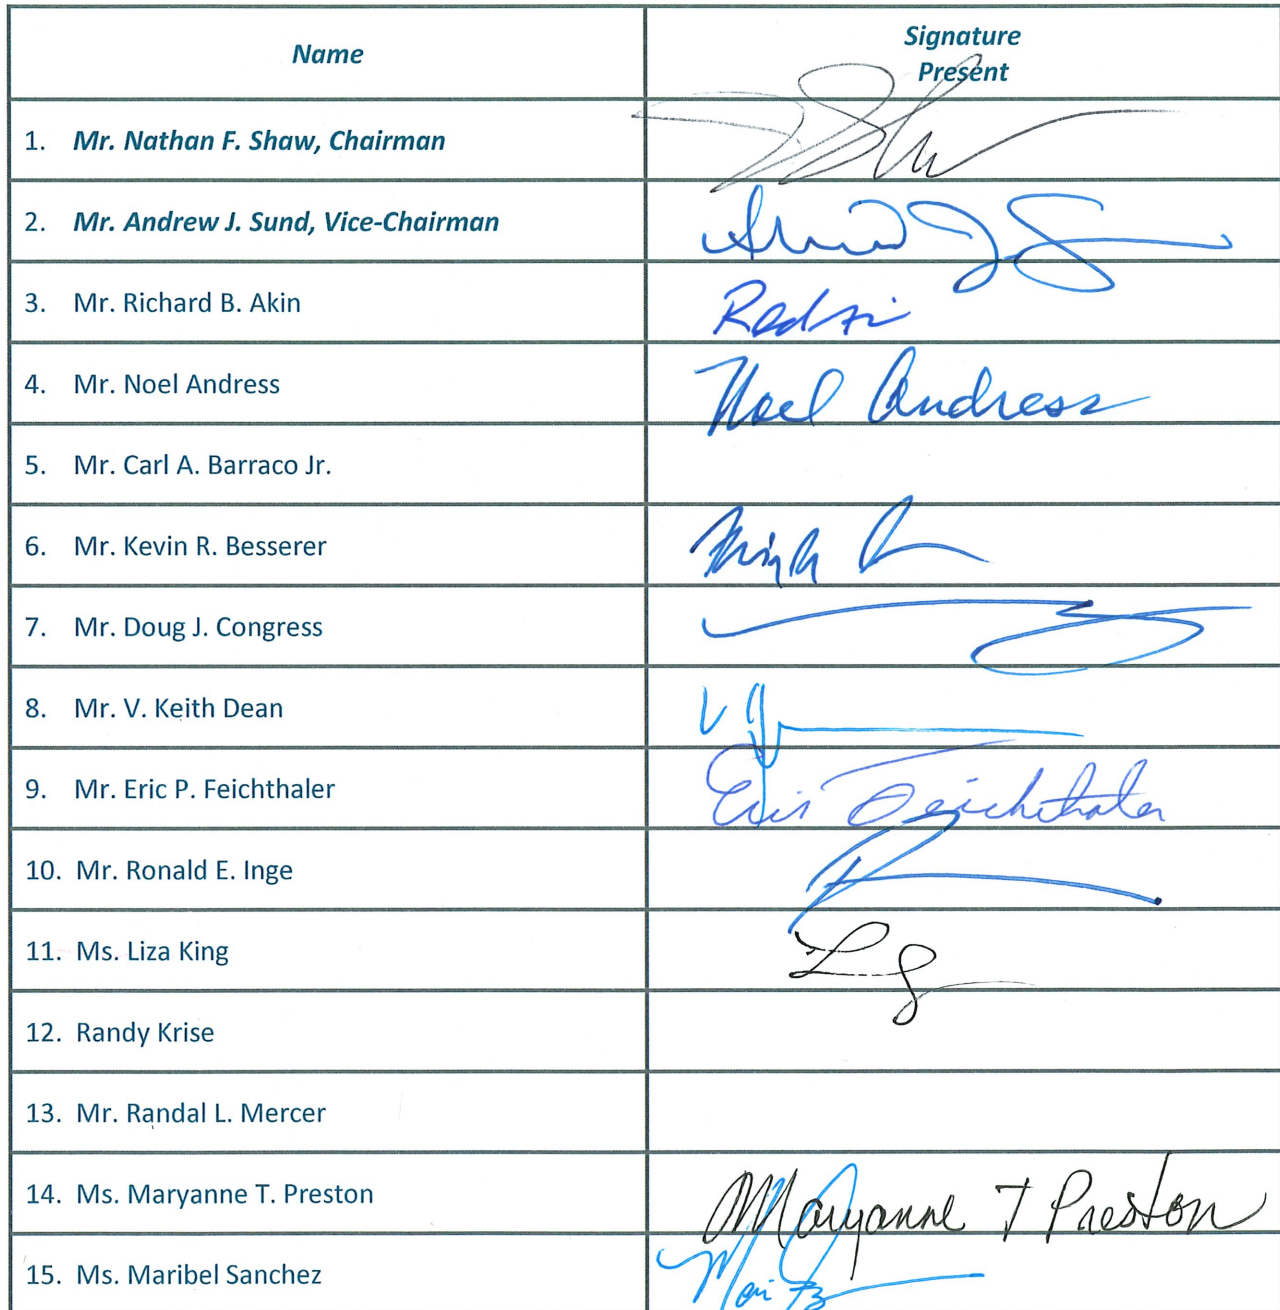 Name
Signature
Present
1. Mr. Nathan F. Shaw, Chairman
2. Mr. Andrew J. Sund, Vice-Chairman
3. Mr. Richard B. Akin
4. Mr. Noel Andress Noel Andress
5. Mr. Carl A. Barraco Jr.
6. Mr. Kevin R. Besserer
7. Mr. Doug J. Congress
8. Mr. V. Keith Dean
9. Mr. Eric P. Feichthaler Eric Feichthaler
10. Mr. Ronald E. Inge
11. Ms. Liza King
12. Randy Krise
13. Mr. Randal L. Mercer
14. Ms. Maryanne T. Preston Maryanne T Preston
15. Ms. Maribel Sanchez